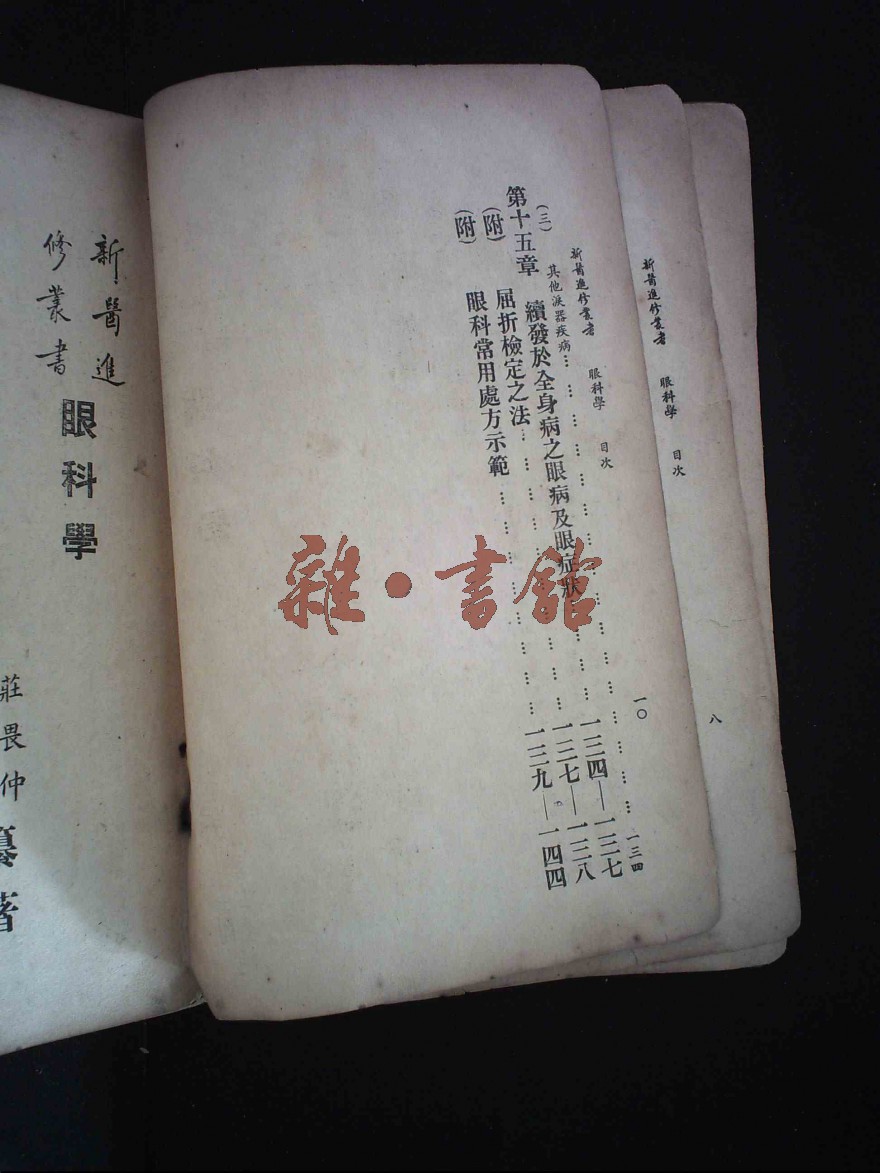 新醫進修叢書 眼科學 目次 八
新醫進修叢書 眼科學 目次 一〇
(三) 其他淚器疾病………………一三四
第十五章 續發於全身病之眼病及眼症狀………………一三四—一三七
(附) 屈折檢定之法………………一三七—一三八
(附) 眼科常用處方示範………………一三九—一四四
新醫進
修叢書
眼科學
莊畏仲 纂著
雜·書館